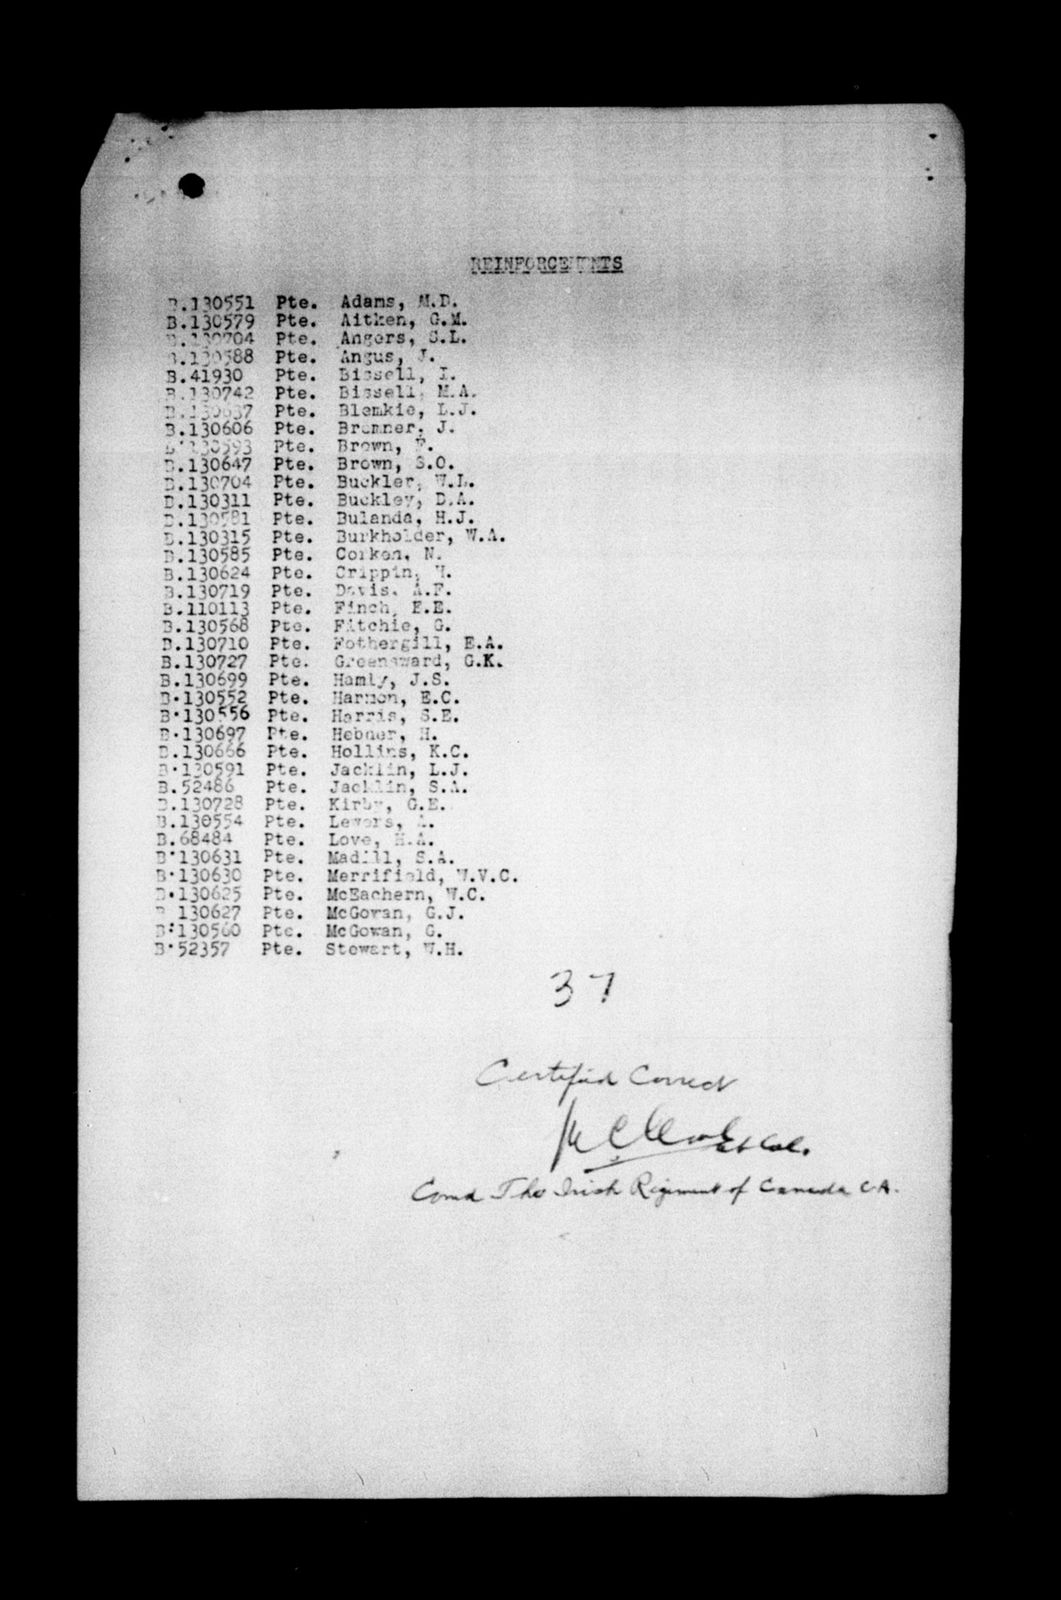 REINFORCEMENTS
B.130551 Pte. Adams, M.D.
B.130579 Pte. Aitken, G.M.
B.130704 Pte. Angers, S.L.
B.130588 Pte. Angus, J.
B.41930 Pte. Bissell, I.
B.130742 Pte. Bissell, M.A.
B.130637 Pte. Blemkie, L.J.
B.130606 Pte. Bremner, J.
B.130593 Pte. Brown, F.
B.130647 Pte. Brown, S.O.
B.130704 Pte. Buckler, W.L.
B.130311 Pte. Buckley, D.A.
B.130581 Pte. Bulanda, H.J.
B.130315 Pte. Burkholder, W.A.
B.130585 Pte. Corken, N.
B.130624 Pte. Crippin,
B.130719 Pte. Davis, A.F.
B.110113 Pte. Finch, E.E.
B.130568 Pte. Fitchie, G.
B.130710 Pte. Fothergill, E.A.
B.130727 Pte. Greensward, G.K.
B.130699 Pte. Hamly, J.S.
B.130552 Pte. Harmon, E.C.
B.130556 Pte. Harris, S.E.
B.130697 Pte. Hebner, H.
B.130666 Pte. Hollins, K.C.
B.130591 Pte. Jacklin, L.J.
B.52486 Pte. Jacklin, S.A.
B.130728 Pte. Kirby, G.E.
B.130554 Pte. Levers, A.
B.68484 Pte. Love, H.A.
B.130631 Pte. Madill, S.A.
B.130630 Pte. Merrifield, W.V.C.
B.130625 Pte. McEachern, W.C.
B 130627 Pte. McGowan, G.J.
B.130560 Pte. McGowan, G.
B.52357 Pte. Stewart, W.H.
37
Certified Correct
Lt Col.
Comd The Irish Regiment of Canada C.A.